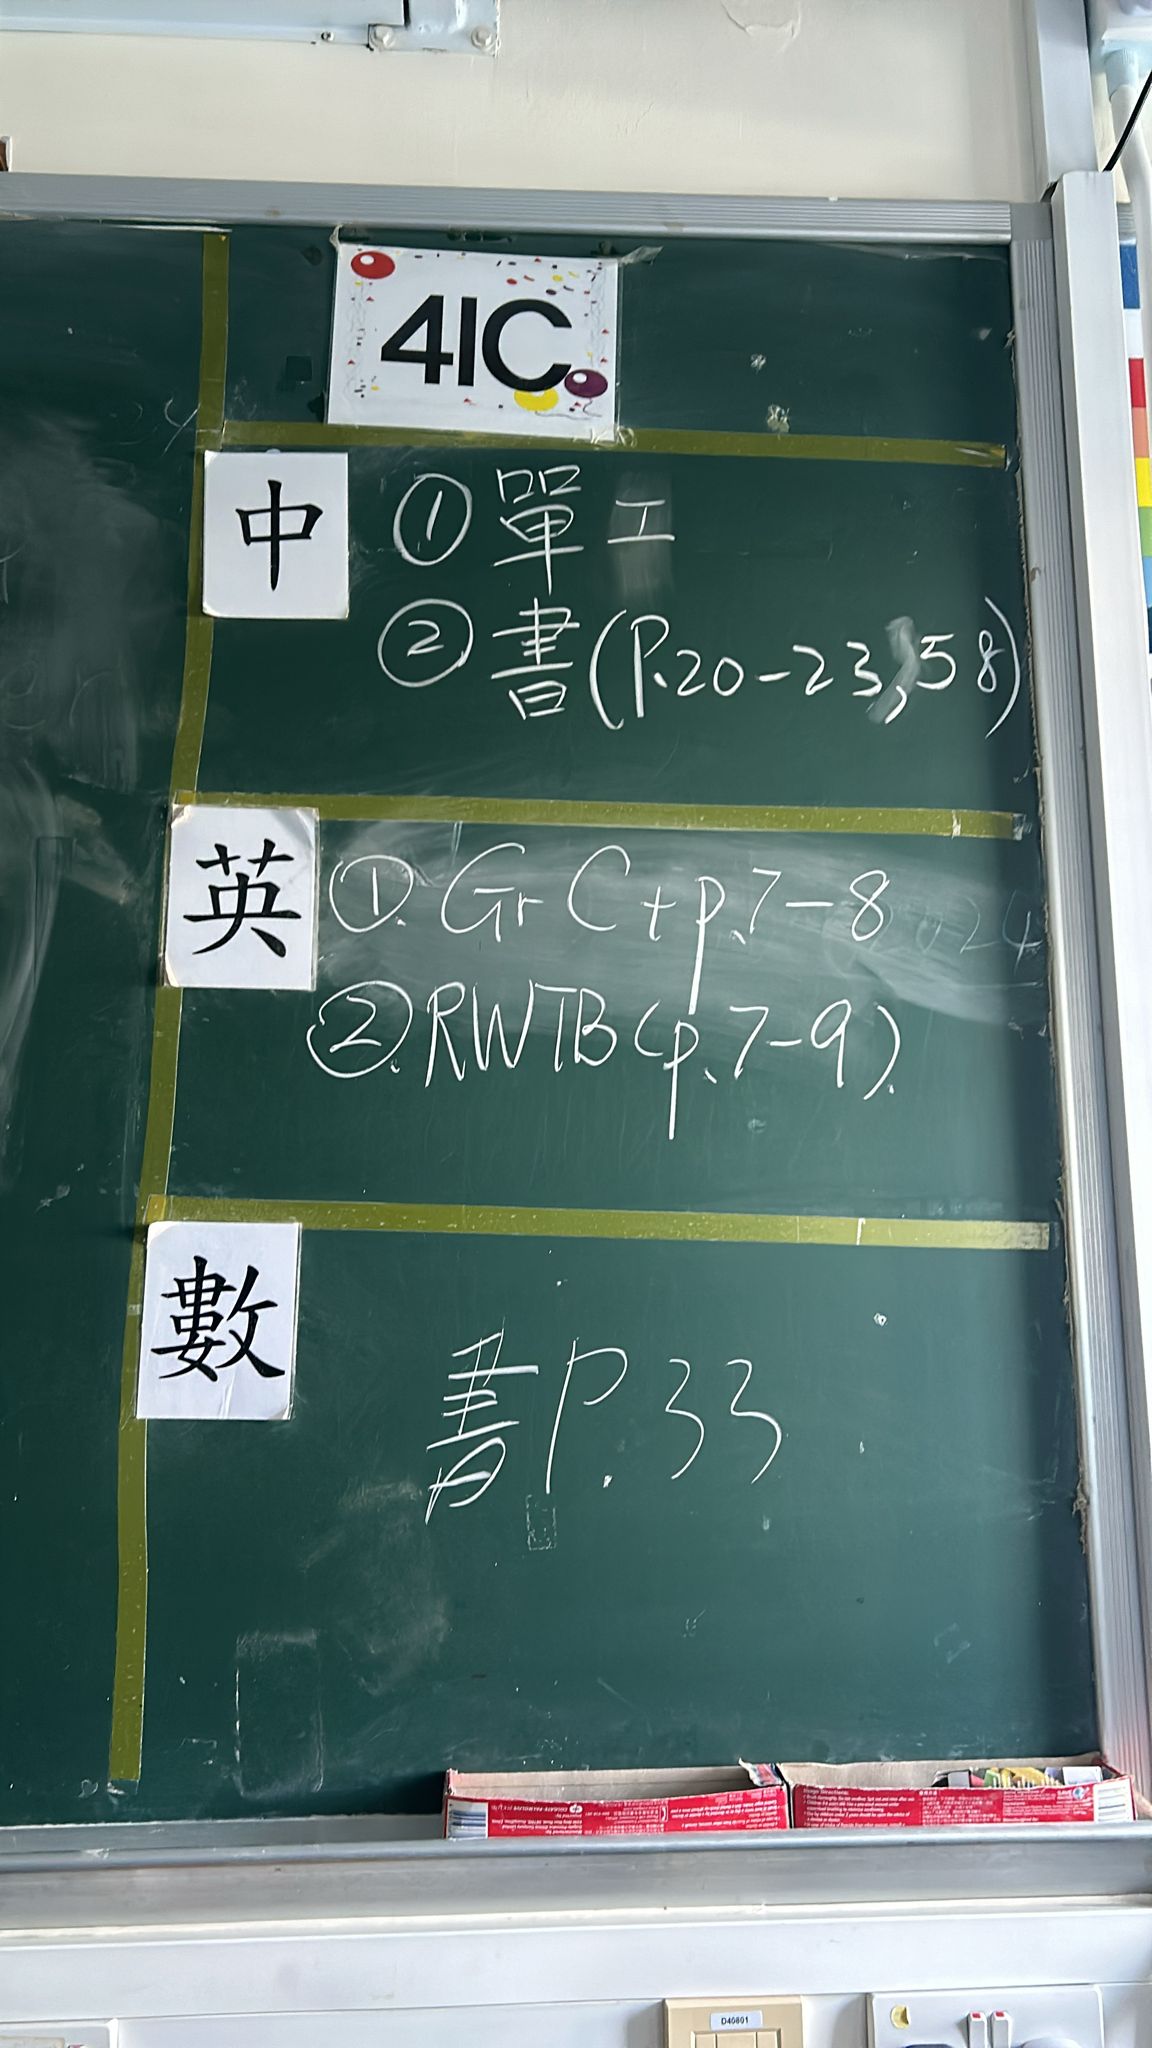 4IC
中
① 單工
② 書(P.20-23,58)
英
①. Gr C + p.7-8
②. RWTB (p.7-9).
數
書 P.33
D40801